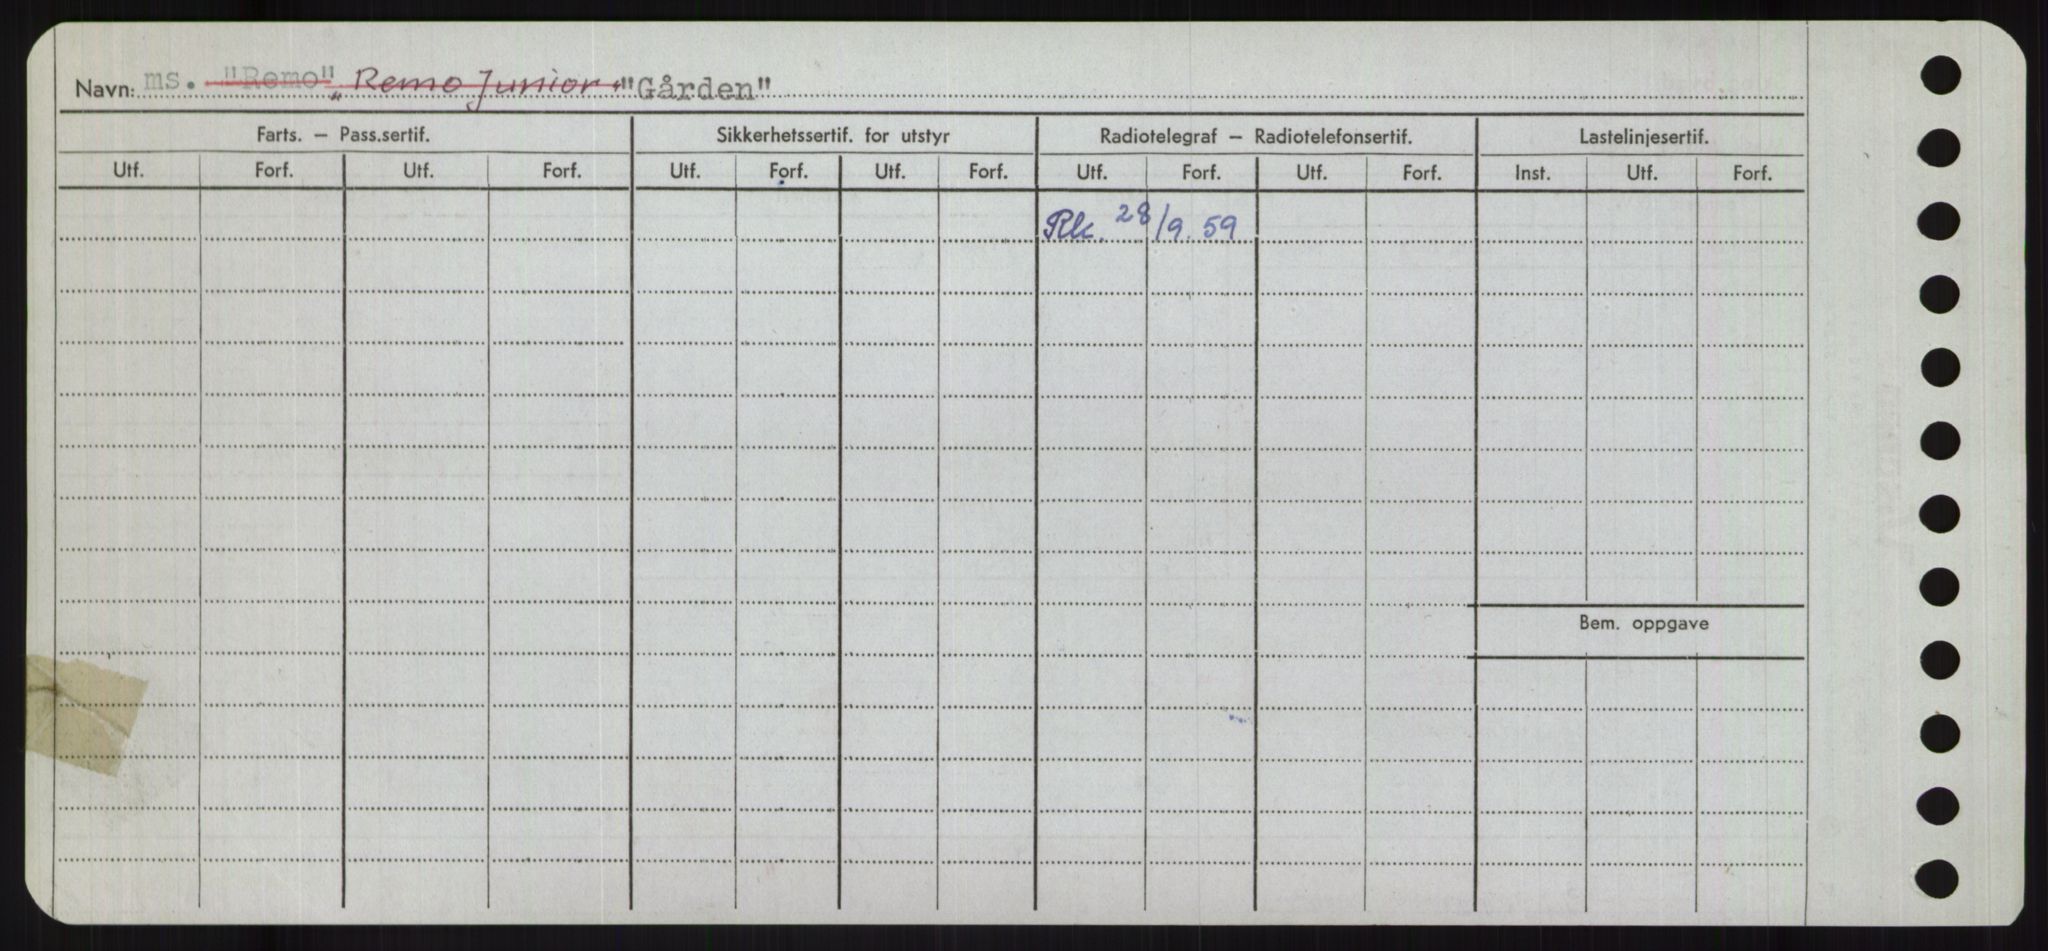 Navn: ms. "Remo" "Remo Junior" "Gården"
Farts. — Pass.sertif. Sikkerhetssertif. for utstyr Radiotelegraf — Radiotelefonsertif. Lastelinjesertif.
Utf. Forf. Utf. Forf. Utf. Forf. Utf. Forf. Utf. Forf. Utf. Forf. Inst. Utf. Forf.
Rlk. 28/9. 59
Bem. oppgave